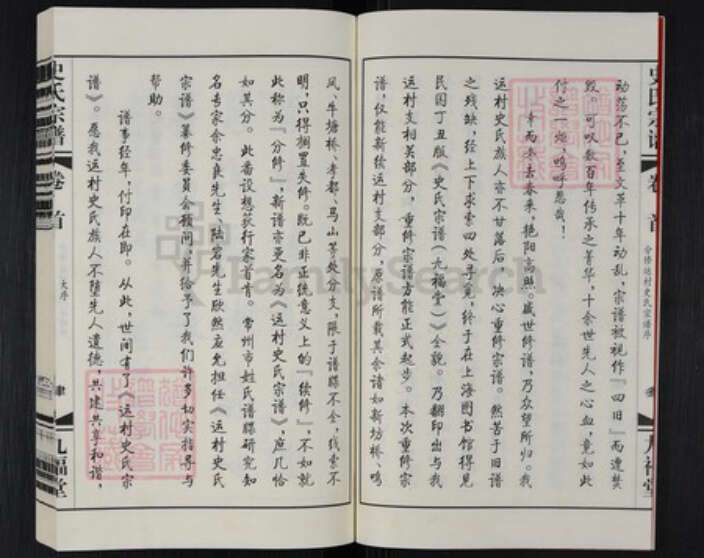 史氏宗谱
卷首
分修运村史氏宗谱序
九福堂
动荡不已，至文革十年动乱，宗谱被视作『四旧』而遭焚
毁。可叹数百年传承之菁华，十余世先人之心血，竟如此
付之一炬，呜呼哀哉！
幸雨来去春来，艳阳高照。盛世修谱，乃众望所归。我
运村史氏族人亦不甘落后，决心重修宗谱。然苦于旧谱
之残缺，经上下求索四处寻觅，终于在上海图书馆得见
民国丁丑版《史氏宗谱（九福堂）》全貌。乃翻印出与我
运村支相关部分，重修宗谱方能正式起步。本次重修宗
谱，仅能新续运村支部分，原谱所载其余诸如新坊桥、鸣
凤、牛塘桥、孝都、马山等处分支，限于谱牒不全，线索不
明，只得搁置失修。既已非正统意义上的『续修』，不如就
此称为『分修』，新谱亦更名为《运村史氏宗谱》，庶几恰
如其分。此番设想获行家首肯。常州市姓氏谱牒研究知
名专家余忠良先生、陆宕先生欣然应允担任《运村史氏
宗谱》纂修委员会顾问，并给予了我们许多切实指导与
帮助。
谱事经年，付印在即。从此，世间有了《运村史氏宗
谱》。愿我运村史氏族人不堕先人遗德，共建共享和谐，
史氏宗谱
卷首
大序
九福堂
FamilySearch